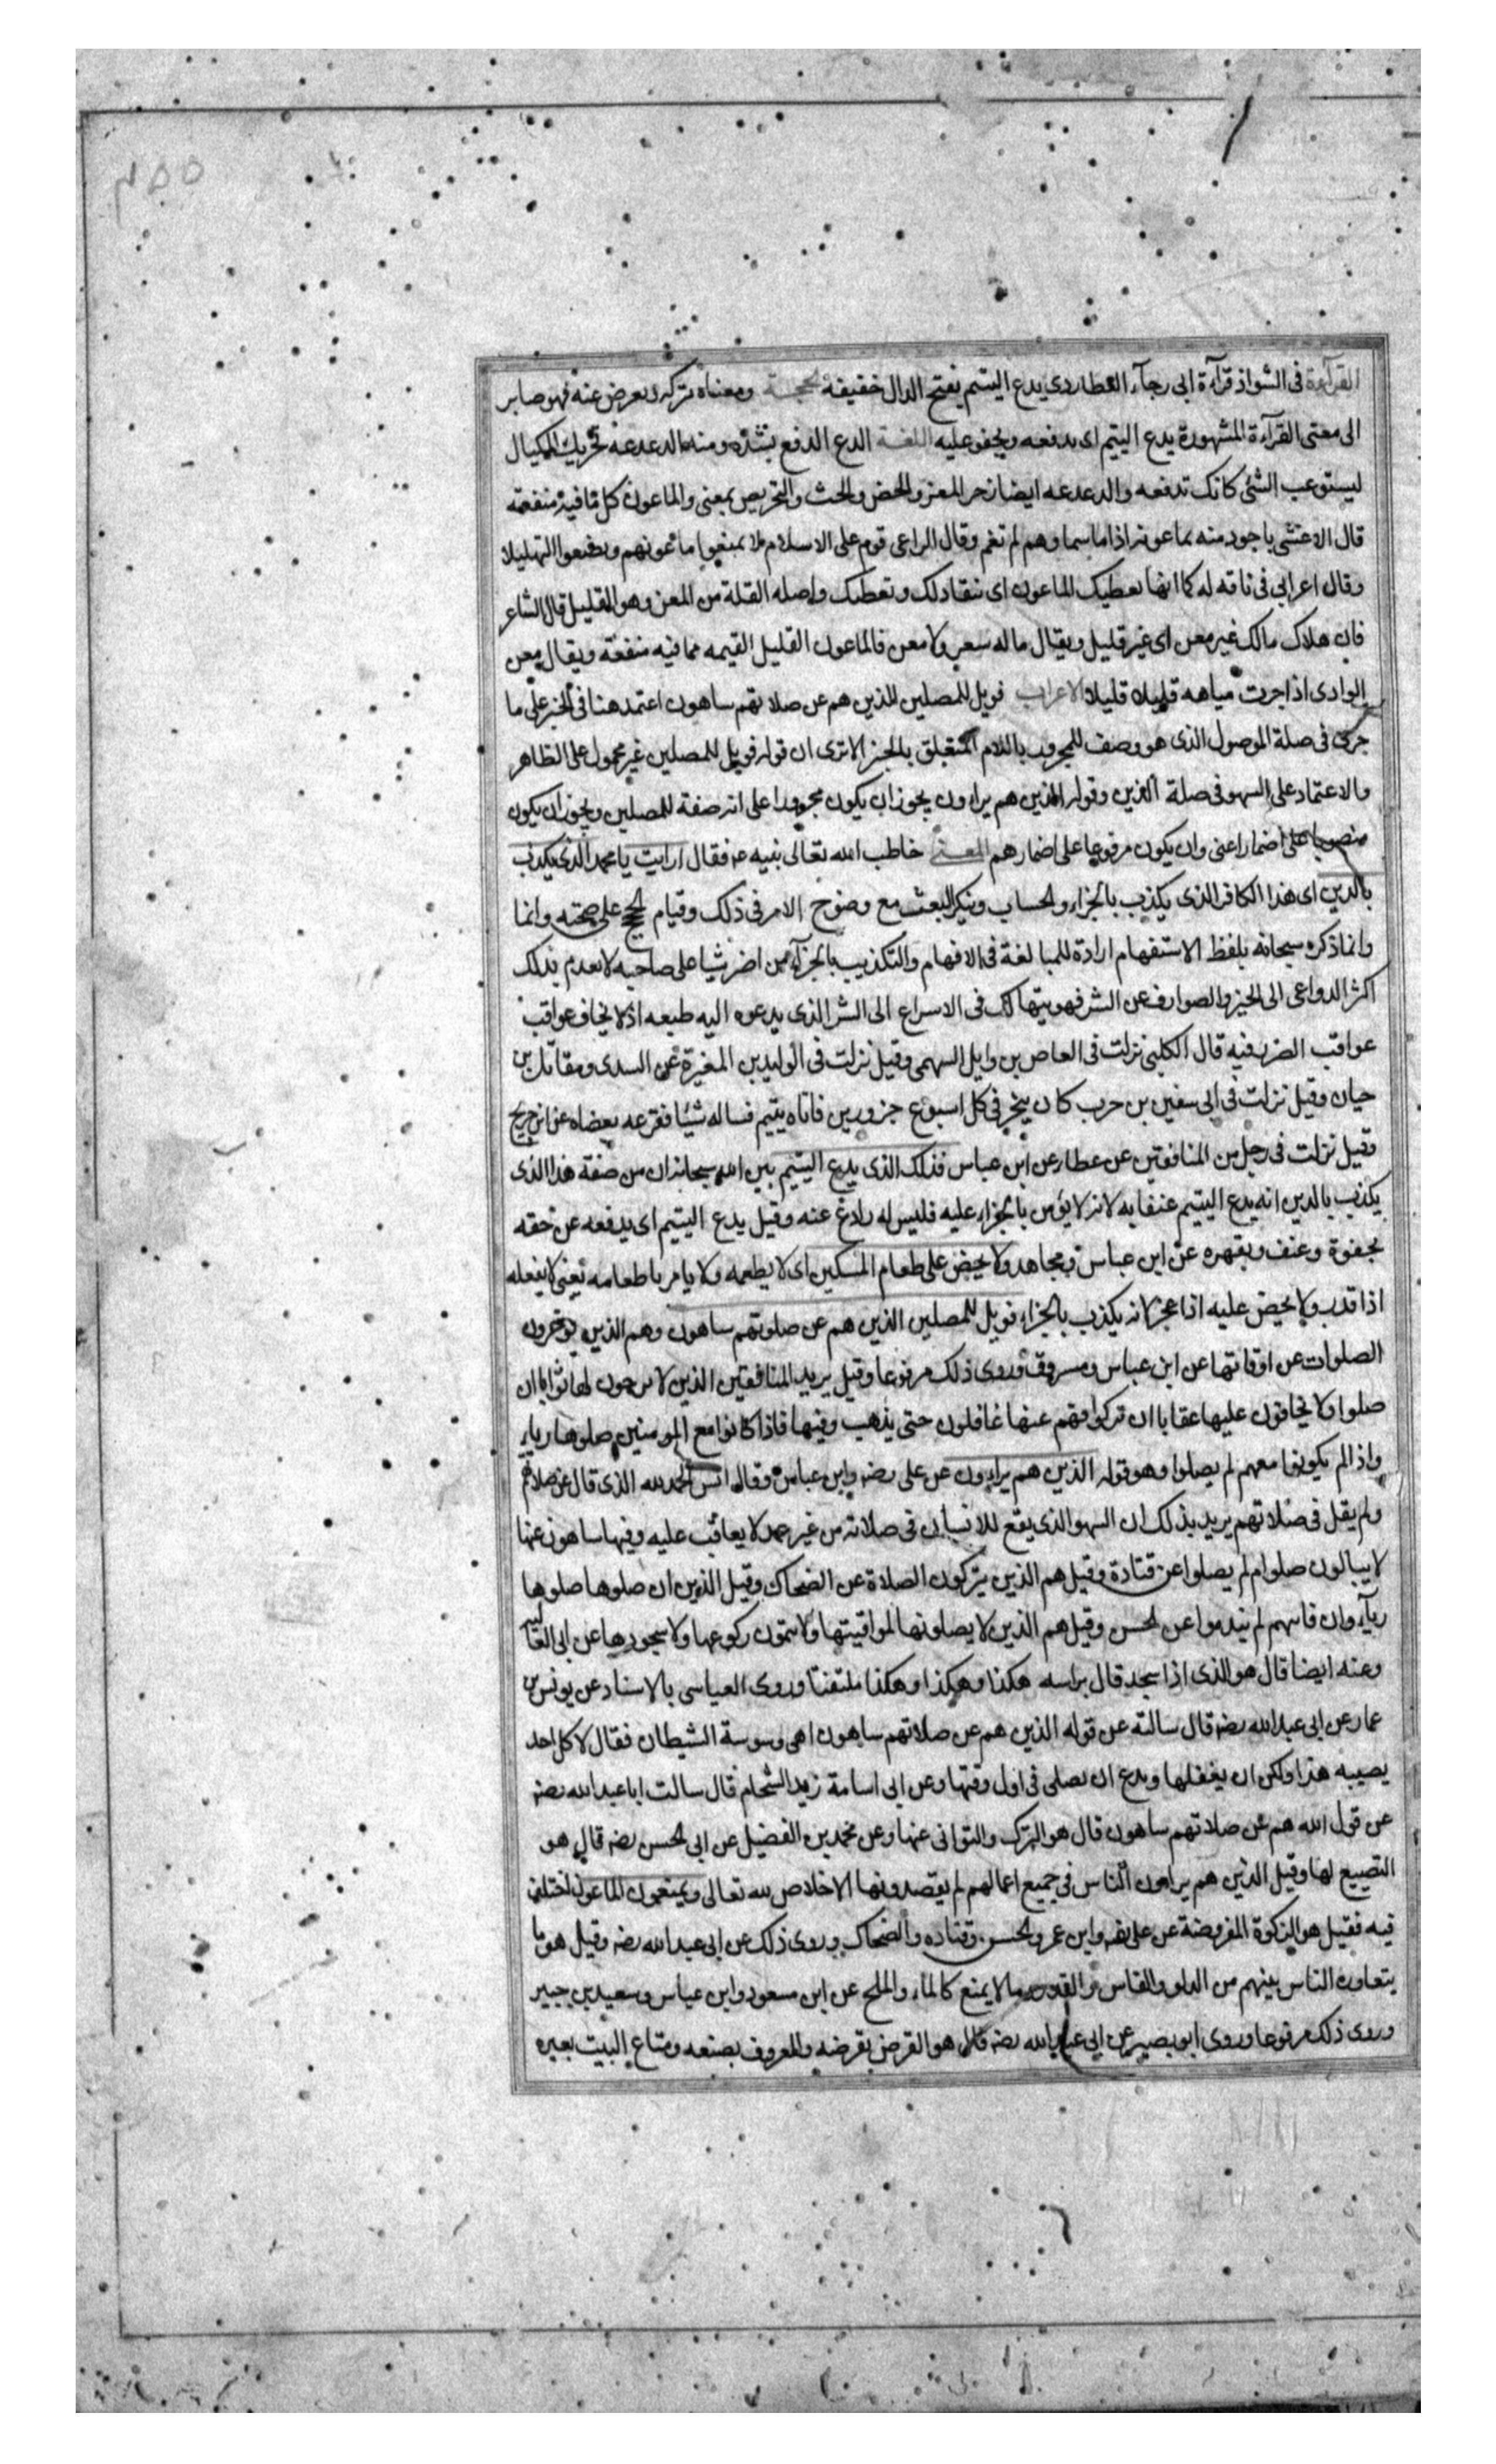 القرآءة فى الشواذ قرآءة ابى رجآء العطاردى يدع اليتيم بفتح الدال خفيفه الحجـة ومعناه يتركه ويعرض عنه فهو صاير
الى معنى القرآءة المشهورة يدع اليتيم اى يدفعه ويجفو عليه اللغـة الدع الدفع بشدّه ومنه الدعدعه تحريك المكيال
ليستوعب الشئ كانك تدفعه والدعدعه ايضا زجر المعز والحض والحث والتحريص بمعنى والماعون كل ما فيه منفعته
قال الاعشى باجود منه بماعونه اذا ما سماوهم لم تغم وقال الراعى قوم على الاسلام لما يمنعوا ماعونهم ويضيعوا التهليلا
وقال اعرابي فى ناقه له كما انها تعطيك الماعون اى تنقاد لك وتعطيك واصله القلة من المعن وهو القليل قال الشاعر
فان هلاك مالك غير معن اى غير قليل ويقال ما له سعن ولا معن فالماعون القليل القيمه مما فيه منفعة ويقال معن
الوادى اذا جرت مياهه قليلا قليلا الاعراب فويل للمصلين الذين هم عن صلاتهم ساهون اعتمد هنا فى الخبر على ما
جرى فى صلة الموصول الذى هو وصف للمجرور باللام المتعلق بالخبر الا ترى ان قوله فويل للمصلين غير محمول على الظاهر
والاعتماد على السهو فى صلة الذين وقوله الذين هم يراون يجوز ان يكون مجرورا على انه صفة للمصلين ويجوز ان يكون
منصوبا على اضمار اعنى وان يكون مرفوعا على اضمار هم المعـنى خاطب الله تعالى نبيه عم فقال ارايت يا محمد الذى يكذب
بالدين اى هذا الكافر الذى يكذب بالجزاء والحساب وينكر البعث مع وضوح الامر فى ذلك وقيام الحجج على صحته وانما
وانما ذكره سبحانه بلفظ الاستفهام ارادة للمبالغة فى الافهام والتكذيب بالجزآء من اضر شيا على صاحبه لانه يعدم بذلك
اكثر الدواعى الى الخير والصوارف عن الشر فهو يتهالك فى الاسراع الى الشر الذى يدعوه اليه طبعه اذ لا يخاف عواقب
عواقب الضرر فيه قال الكلبى نزلت فى العاص بن وايل السهمى وقيل نزلت فى الوليد بن المغيرة عن السدى ومقاتل بن
حيان وقيل نزلت فى ابى سفين بن حرب كان ينحر فى كل اسبوع جزورين فاتاه يتيم فساله شيئا فقرعه بعصاه عن ابن جريج
وقيل نزلت فى رجل من المنافقين عن عطاء عن ابن عباس فذلك الذى يدع اليتيم بين الله سبحانه ان من صفة هذا الذى
يكذب بالدين انه يدع اليتيم عنفا به لانه لا يؤمن بالجزاء عليه فليس له رادع عنه وقيل يدع اليتيم اى يدفعه عن حقه
بجفوة وعنف ويقهره عن ابن عباس ومجاهد ولا يحض على طعام المسكين اى لا يطعمه ولا يامر باطعامه يعنى لا يفعله
اذا قدر ولا يحض عليه اذا عجز لانه يكذب بالجزاء فويل للمصلين الذين هم عن صلوتهم ساهون وهم الذين يوخرون
الصلوات عن اوقاتها عن ابن عباس ومسروق وروى ذلك مرفوعا وقيل يريد المنافقين الذين لا يرجون لها ثوابا ان
صلوا ولا يخافون عليها عقابا ان تركوا فهم عنها غافلون حتى يذهب وقتها فاذا كانوا مع المومنين صلوها رياء
واذا لم يكونوا معهم لم يصلوا وهو قوله الذين هم يراون عن على رضه وابن عباس وقال انس الحمد لله الذى قال عن صلاتهم
ولم يقل فى صلاتهم يريد بذلك ان السهو الذى يقع للانسان فى صلاته من غير عمد لا يعاقب عليه وقيل ساهون عنها
لا يبالون صلوا ام لم يصلوا عن قتادة وقيل هم الذين يتركون الصلاة عن الضحاك وقيل الذين ان صلوها صلوها
ريآء وان فاتتهم لم يندموا عن الحسن وقيل هم الذين لا يصلونها لمواقيتها ولا يتمون ركوعها ولا سجودها عن ابى العالية
وعنه ايضا قال هو الذى اذا سجد قال براسه هكذا وهكذا وهكذا ملتفتا وروى العياسى بالاسناد عن يونس بن
عمار عن ابى عبد الله رضه قال سالته عن قوله الذين هم عن صلاتهم ساهون اهى وسوسة الشيطان فقال لا كل احد
يصيبه هذا ولكن ان يغفلها ويدع ان يصلى فى اول وقتها وعن ابى اسامة زيد الشحام قال سالت ابا عبد الله رضه
عن قول الله هم عن صلاتهم ساهون قال هو الترك والتوانى عنها وعن محمد بن الفضيل عن ابى الحسن رضه قال هو
التضييع لها وقيل الذين هم يراون الناس فى جميع اعمالهم لم يقصدونها الاخلاص لله تعالى ويمنعون الماعون اختلف
فيه فقيل هو الزكوة المفروضة عن على رضه وابن عمر والحسن وقتاده والضحاك وروى ذلك عن ابى عبد الله رضه وقيل هو ما
يتعاوره الناس بينهم من الدلو والفاس والقدر وما لا يمنع كالماء والملح عن ابن مسعود وابن عباس وسعيد بن جبير
وروى ذلك مرفوعا وروى ابو بصير عن ابى عبد الله رضه قال هو القرض يقرضه والمعروف يصنعه ومتاع البيت يعيره